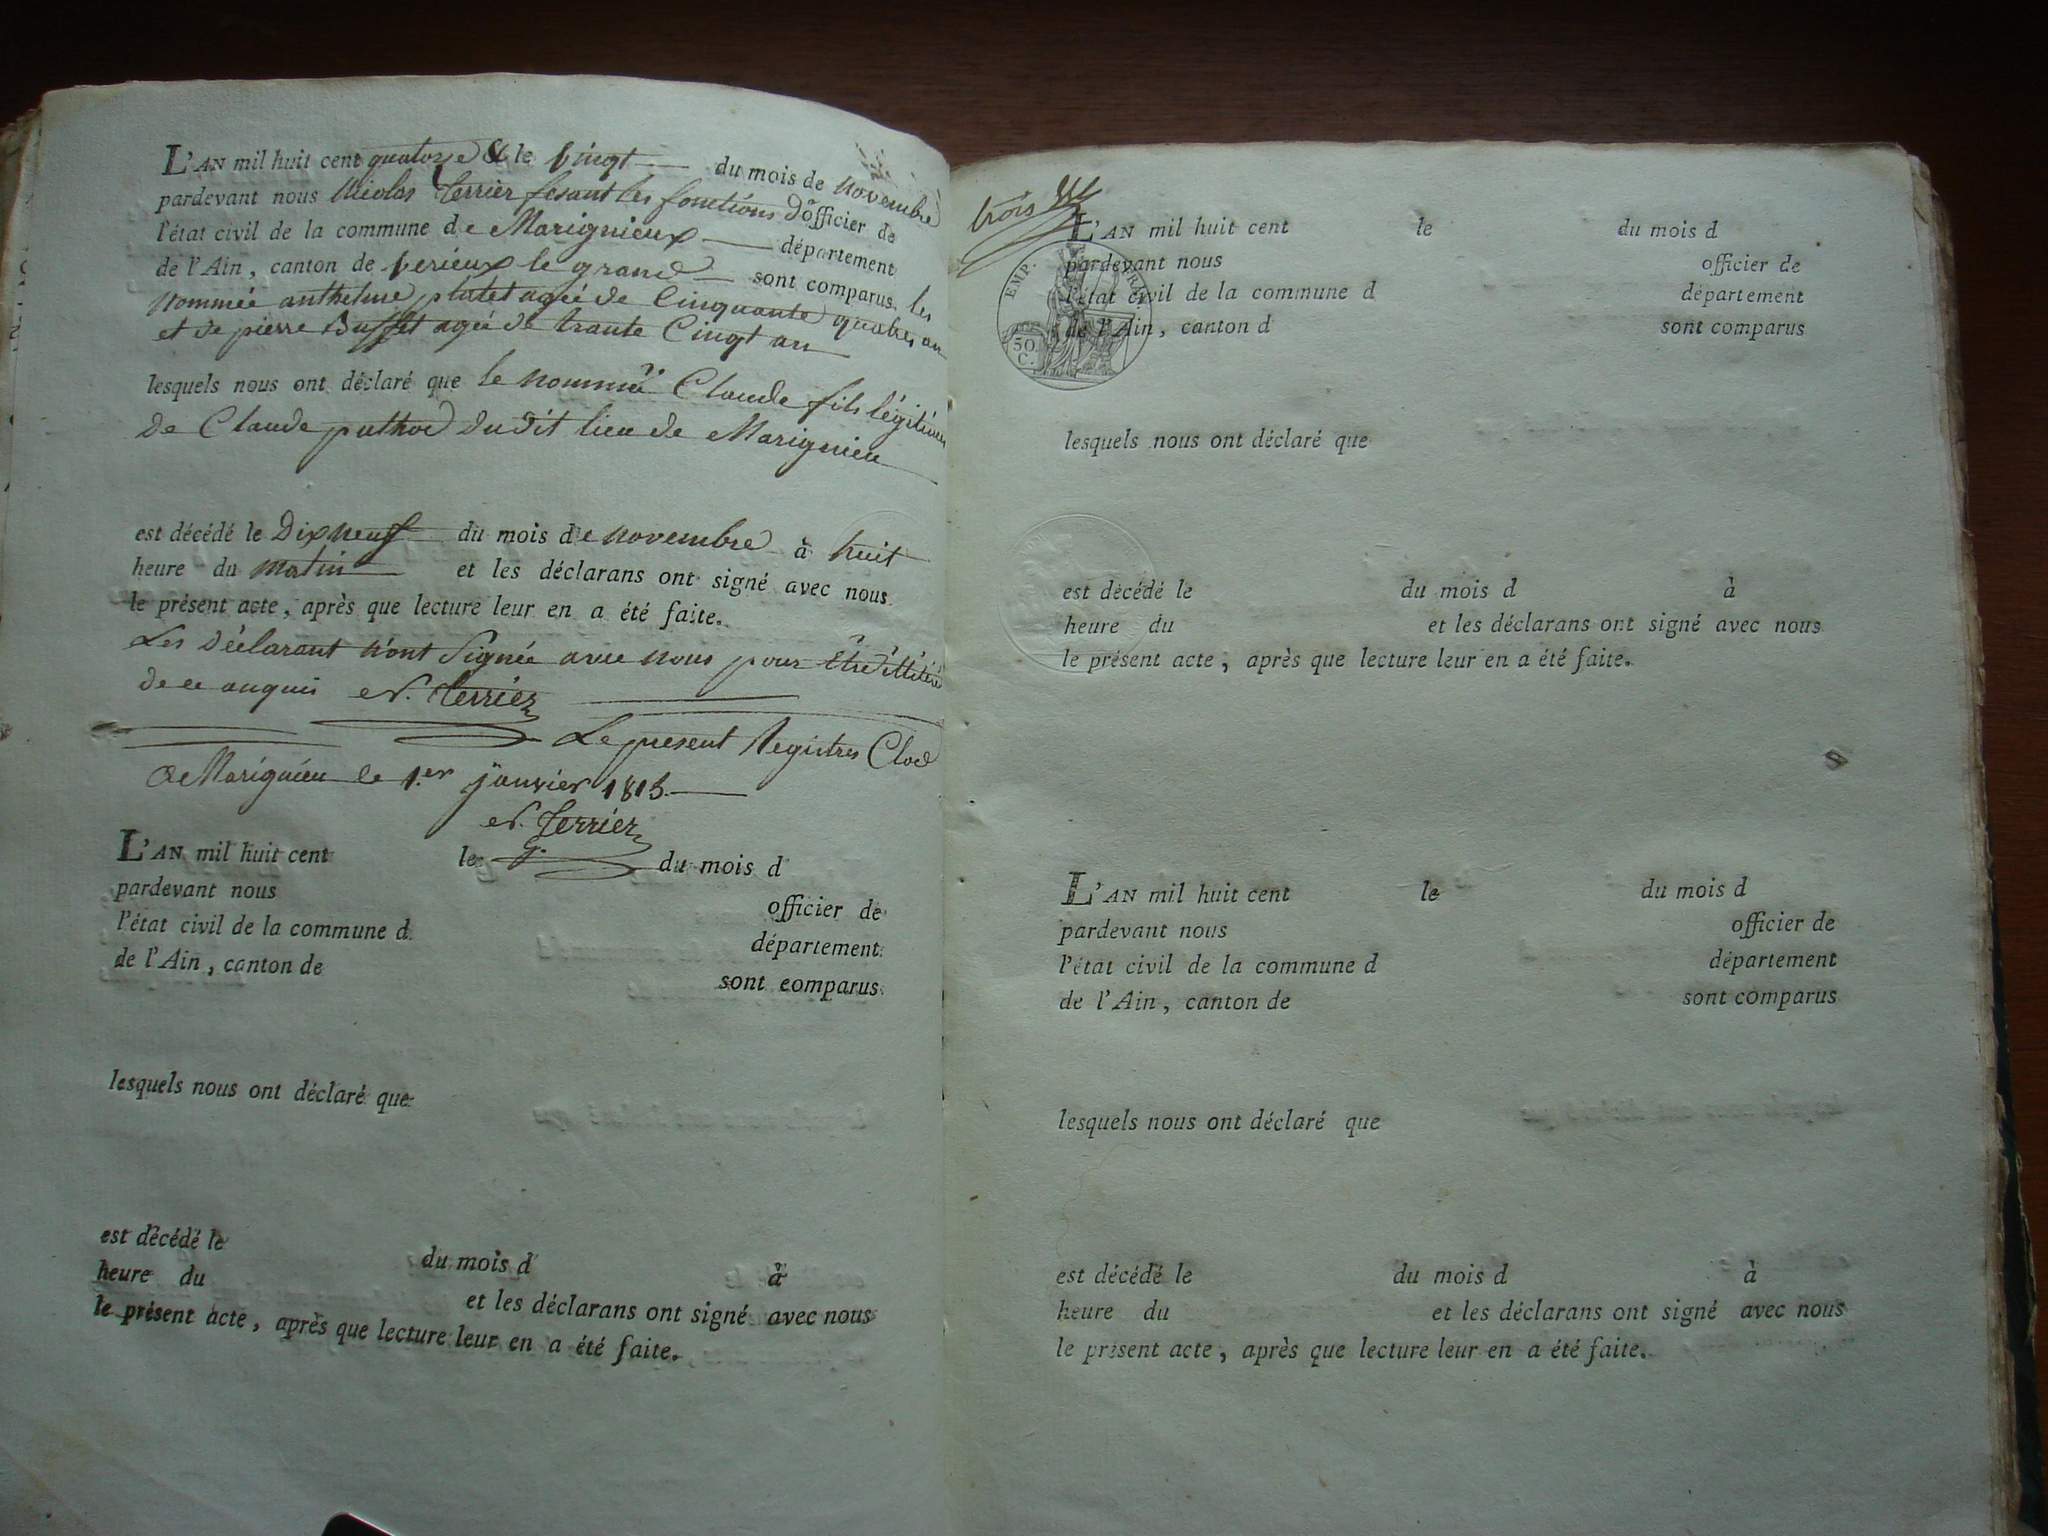 L'AN mil huit cent quatorze & le vingt du mois de novembre
pardevant nous Nicolas Terrier fesant les fonctions d'officier de
l'état civil de la commune de Marignieux département
de l'Ain, canton de verieux le grand sont comparus les
nommée anthelme plutet agée de Cinquante quatres an
et de pierre Buffet agée de trante Cingt an
lesquels nous ont déclaré que le nommé Claude fils légitime
de Claude puthod dudit lieu de Marignieu
est décédé le Dix neuf du mois de novembre à huit
heure du matin et les déclarans ont signé avec nous
le présent acte, après que lecture leur en a été faite.
Les Déclarant n'ont Signée avec nous pour être illitéré
de ce anquis N. Terrier
Le present Registres Clod
a Marignieu le 1.er janvier 1815
N. Terrier
L'AN mil huit cent le du mois d
pardevant nous officier de
l'état civil de la commune d département
de l'Ain, canton de sont comparus
lesquels nous ont déclaré que
est décédé le du mois d à
heure du et les déclarans ont signé avec nous
le présent acte, après que lecture leur en a été faite.
trois
EMP. FRA
50.
C.
L'AN mil huit cent le du mois d
pardevant nous officier de
l'état civil de la commune d département
de l'Ain, canton d sont comparus
lesquels nous ont déclaré que
est décédé le du mois d à
heure du et les déclarans ont signé avec nous
le présent acte, après que lecture leur en a été faite.
L'AN mil huit cent le du mois d
pardevant nous officier de
l'état civil de la commune d département
de l'Ain, canton de sont comparus
lesquels nous ont déclaré que
est décédé le du mois d à
heure du et les déclarans ont signé avec nous
le présent acte, après que lecture leur en a été faite.